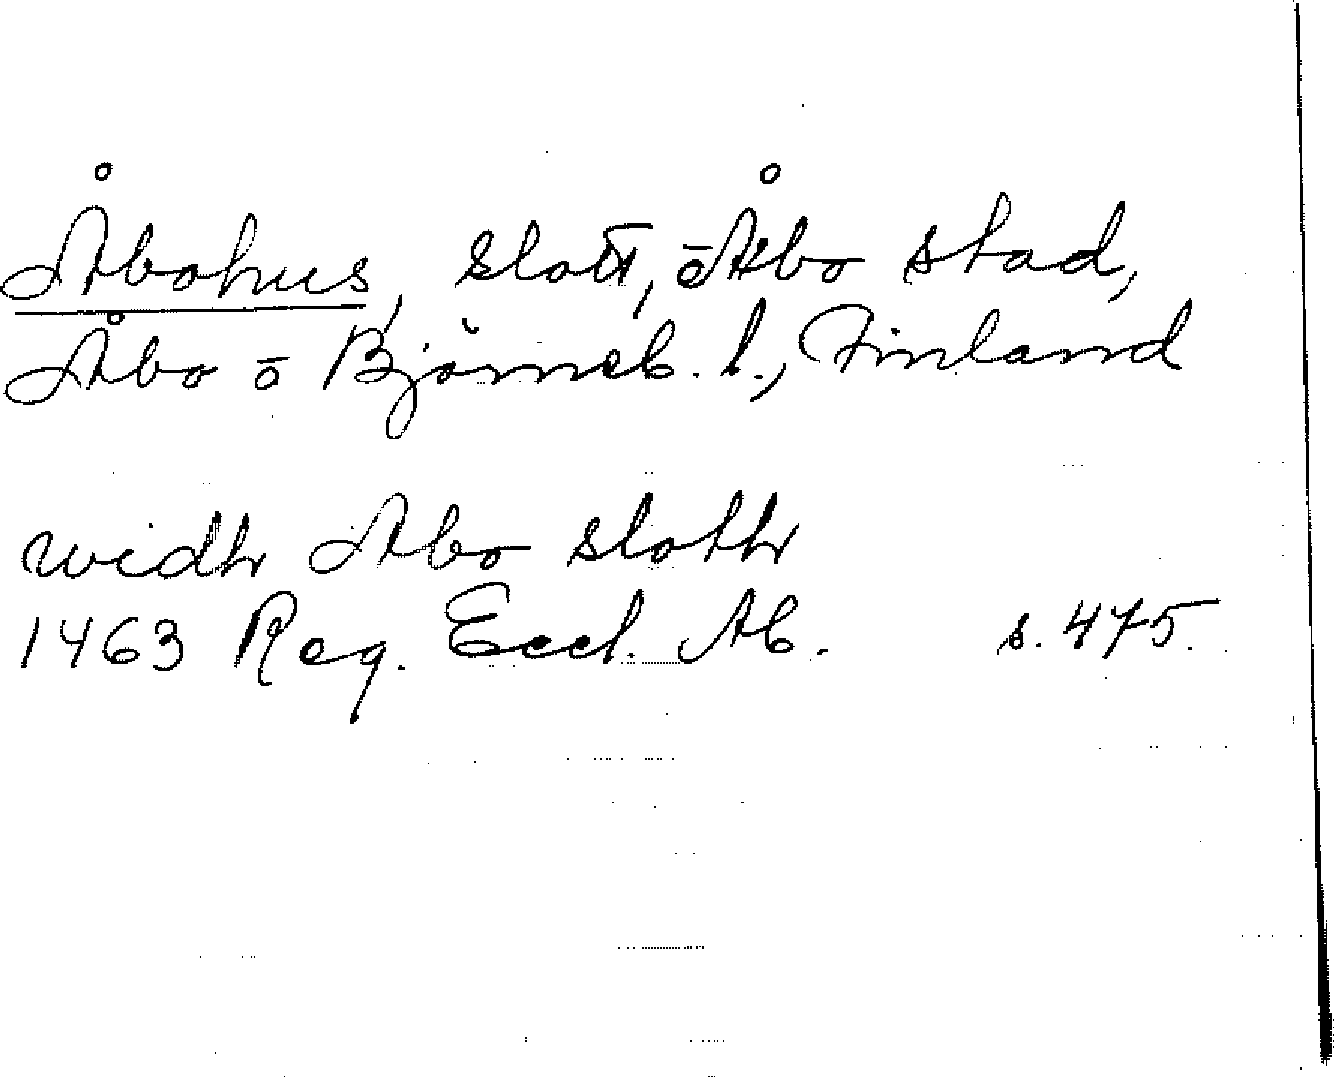 Åbohus, slott, Åbo stad,
Åbo o Björneb. l., Finland
widh Abo sloth
1463 Reg. Eccl. Ab. s. 475.